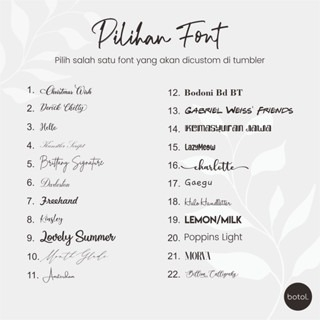 Pilihan Font
Pilih salah satu font yang akan dicustom di tumbler
1. Christmas Wish
2. Derick Chitty
3. Hello
4.
5. Brittany Signature
6.
7. Freehand
8.
9. Lovely Summer
10.
11. Amsterdam
12. Bodoni Bd BT
13. Gabriel Weiss' Friends
14. Kemasyuran Jawa
15. LazyMeow
16. charlotte
17. Gaegu
18. Halo Handletter
19. LEMON/MILK
20. Poppins Light
21. MORVA
22.
botol.